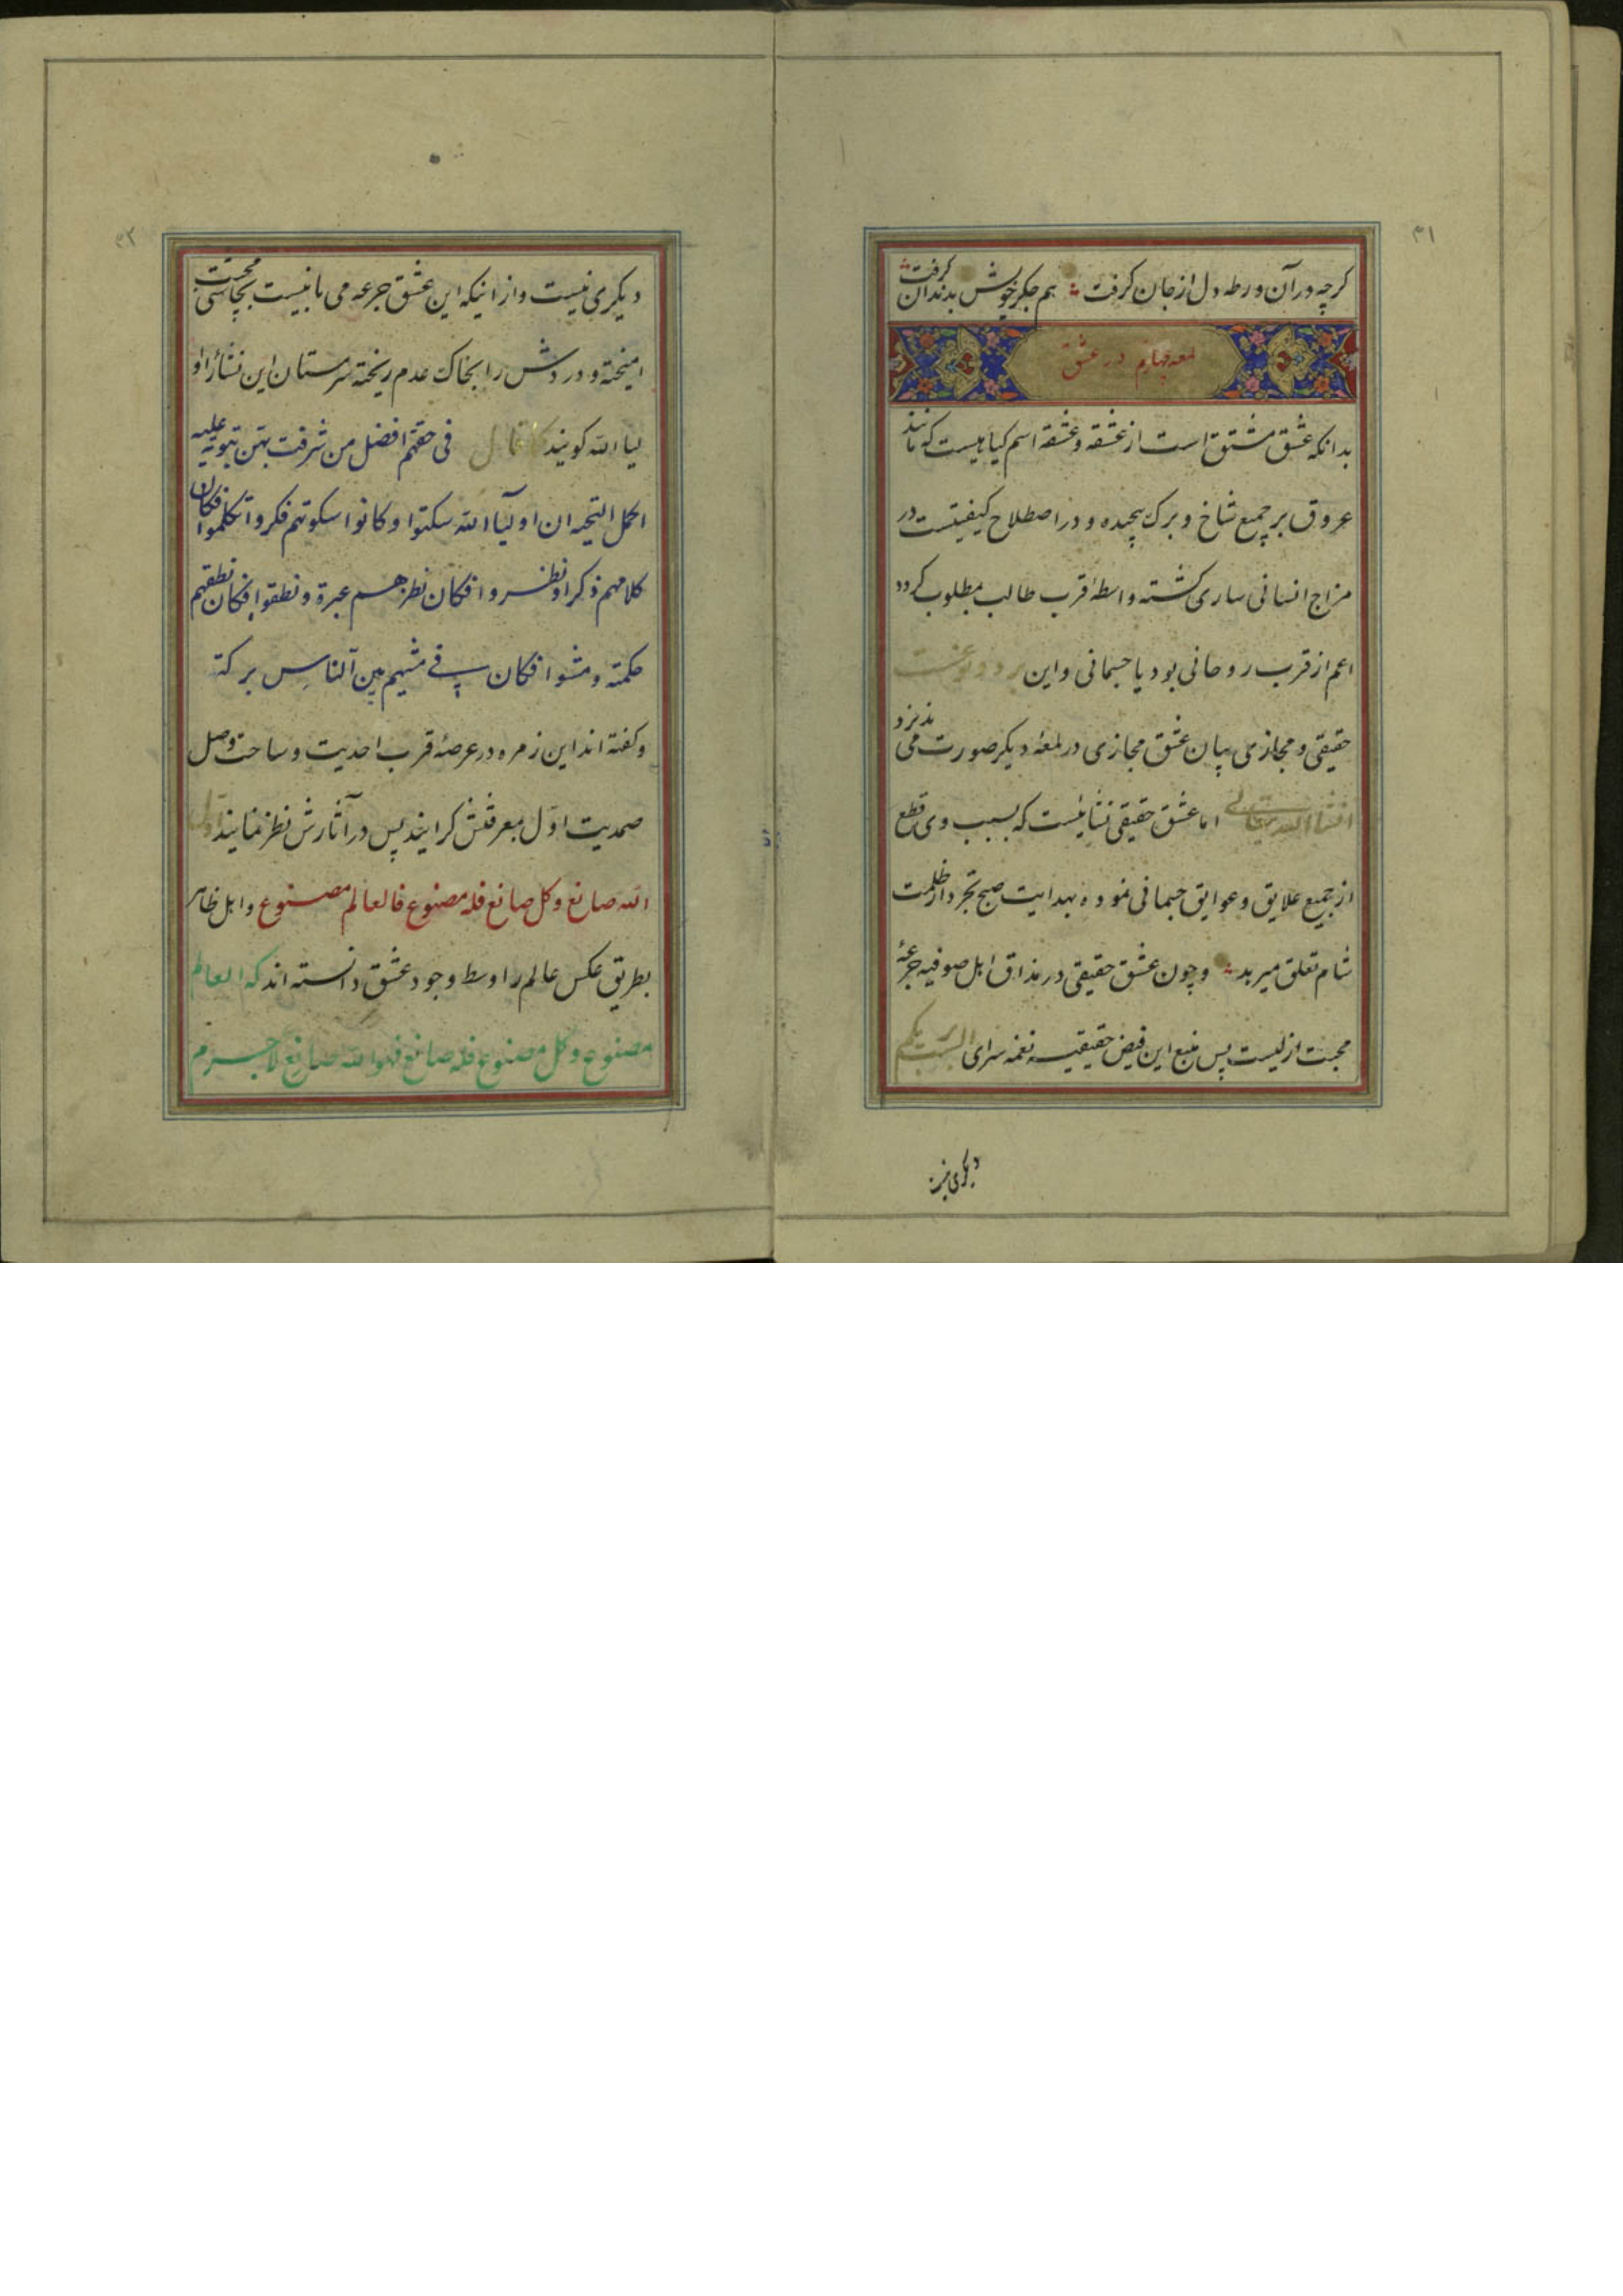 ۳۱
گرچه در آن ورطه دل از جان گرفت هم جگر خویش بدندان گرفت
لمعه چهارم در عشق
بدانکه عشق مشتق است از عشقه و عشقه اسم کیاهیست که مانند
عروق بر جمیع شاخ و برک پیچیده و در اصطلاح کیفیتست در
مزاج انسانی ساری کشته واسطهٔ قرب طالب بمطلوب کردد
اعم از قرب روحانی بود یا جسمانی و این بر دو نوعست
حقیقی و مجازی بیان عشق مجازی در لمعهٔ دیکر صورت می پذیرد
انشاالله تعالی اما عشق حقیقی نشائیست که بسبب وی قطع
از جمیع علایق و عوایق جسمانی نموده بهدایت صبح تجرد از ظلمت
شام تعلق میرهد و چون عشق حقیقی در مذاق اهل صوفیه جرعهٔ
محبت ازلیست پس منبع این فیض حقیقیه نغمه سرای الست بربکم
دیکری نیست
۳۲
دیکری نیست و از اینکه این عشق جرعه می نابیست بچاشنی محبت
امیخته و دردش را بخاک عدم ریخته سرمستان این نشاٴ را او
لیاالله کویند کما قال فی حقهم افضل من شرفت بهن تبویه علیه
الحمل التحیه ان اولیآالله سکتوا و کانوا سکوتهم فکر و اتکلموا فکان
کلامهم ذکرا و نظروا فکان نظرهم عبرة و نطقوا فکان نطقهم
حکمته و مشوا فکان فی مشیهم بین الناس برکة
و کفته اند این زمره در عرصهٔ قرب احدیت و ساحت وصل
صمدیت اول بمعرفتش کرایند پس در آثارش نظر نمایند
الله صانع و کل صانع فله مصنوع فالعالم مصنوع و اهل ظاهر
بطریق عکس عالم را وسط وجود عشق دانسته اند که العالم
مصنوع و کل مصنوع فله صانع فهوالله صانع لاجرم